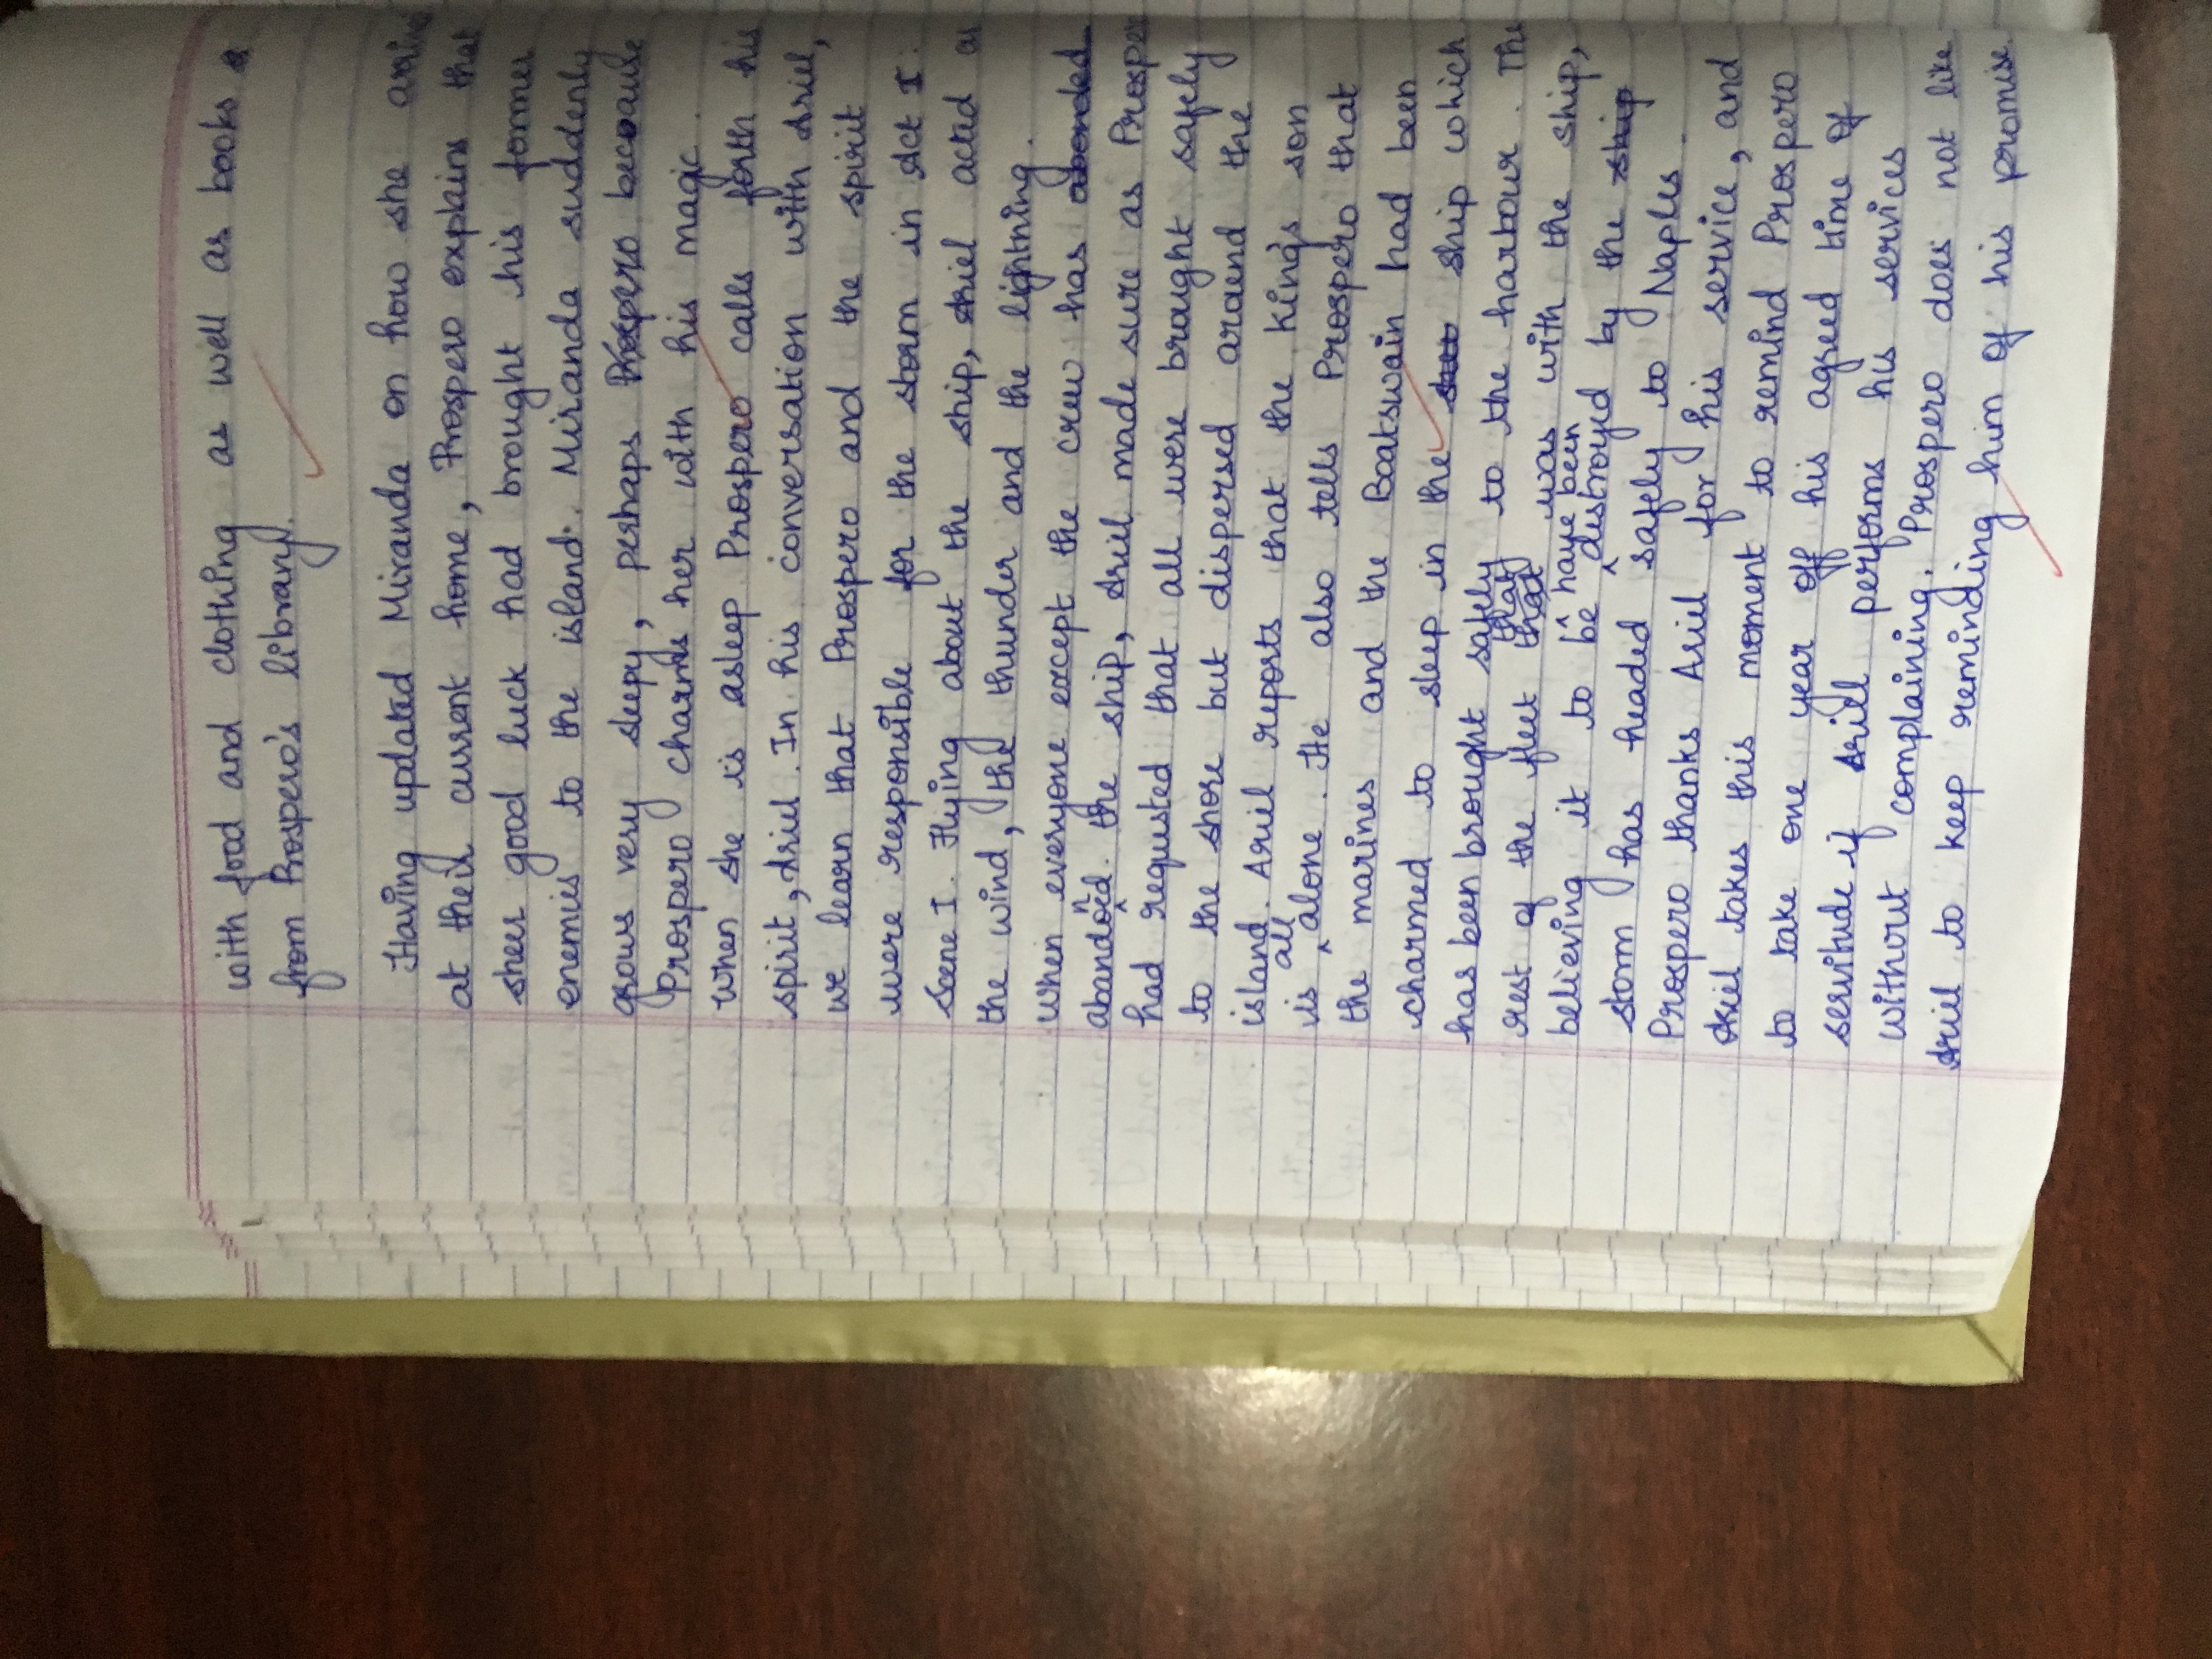 with food and clothing as well as books
from Prospero's library.
Having updated Miranda on how she
at their current home, Prospero explains that
sheer good luck had brought his former
enemies to the island. Miranda suddenly
grows very sleepy, perhaps Prospero becoause
Prospero charms her with his magic.
When she is asleep Prospero calls forth his
spirit, Ariel. In his conversation with Ariel,
we learn that Prospero and the spirit
were responsible for the storm in Act I
Scene I. Flying about the ship, Ariel acted as
the wind, the thunder and the lightning.
When everyone except the crew has abonded
abandoned the ship, Ariel made sure as Prospero
had requested that all were brought safely
to the shore but dispersed around the
island. Ariel reports that the King's son
is all alone. He also tells Prospero that
the marines and the Boatswain had been
charmed to sleep in the ship which
has been brought safely to the harbour. The
rest of the fleet that that was with the ship,
believing it to be have been destroyed by the ship
storm has headed safely to Naples.
Prospero thanks Ariel for his service, and
Ariel takes this moment to remind Prospero
to take one year off his agreed time of
servitude if Ariel performs his services
without complaining. Prospero does not like
Ariel to keep reminding him of his promise.